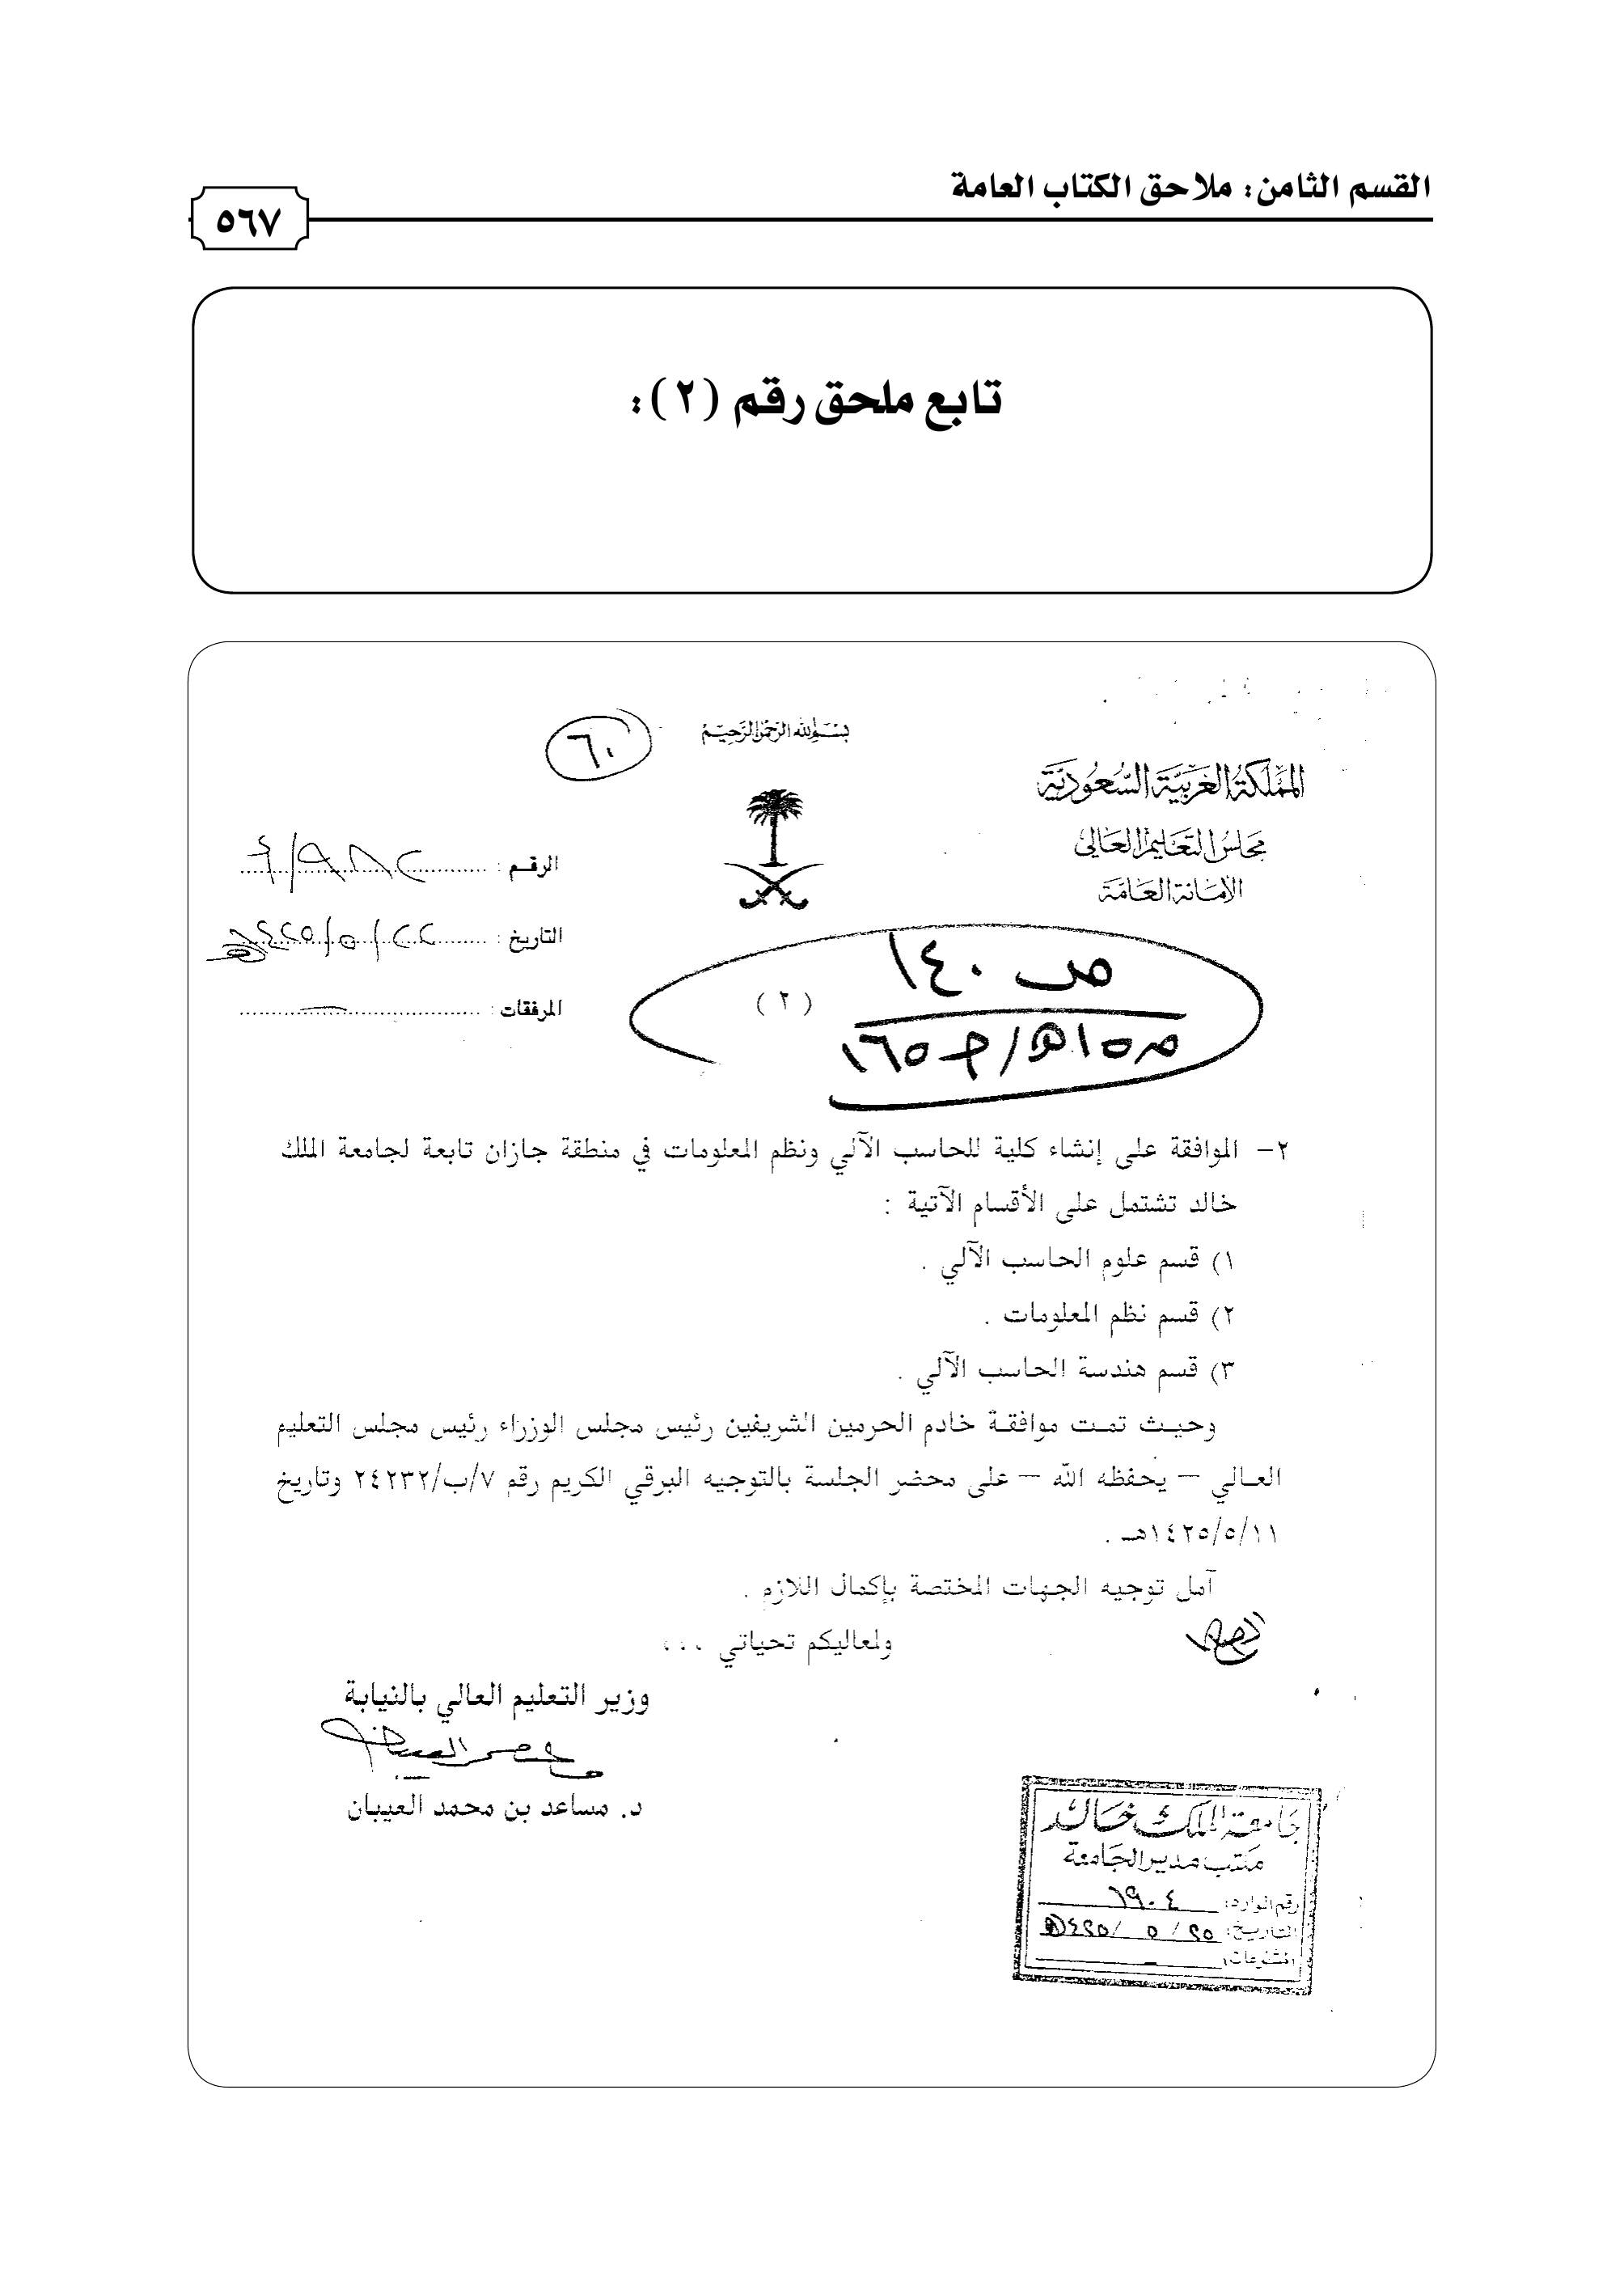 القسم الثامن: ملاحق الكتاب العامة
٥٦٧
تابع ملحق رقم (٢):
بسم الله الرحمن الرحيم
٦٠
المملكة العربية السعودية
مجلس التعليم العالي
الأمانة العامة
الرقم :
التاريخ : ٢٢/٥/١٤٢٥
المرفقات :
ص ١٤٠
(٢)
٢- الموافقة على إنشاء كلية للحاسب الآلي ونظم المعلومات في منطقة جازان تابعة لجامعة الملك
خالد تشتمل على الأقسام الآتية :
١) قسم علوم الحاسب الآلي .
٢) قسم نظم المعلومات .
٣) قسم هندسة الحاسب الآلي .
وحيث تمت موافقة خادم الحرمين الشريفين رئيس مجلس الوزراء رئيس مجلس التعليم
العالي – يحفظه الله – على محضر الجلسة بالتوجيه البرقي الكريم رقم ٧/ب/٢٤٢٣٢ وتاريخ
١٤٢٥/٥/١١هـ .
آمل توجيه الجهات المختصة بإكمال اللازم .
ولمعاليكم تحياتي ،،،
وزير التعليم العالي بالنيابة
د. مساعد بن محمد العيبان
جامعة الملك خالد
مكتب مدير الجامعة
رقم الوارد: ٦٩٠٤
التاريخ: ٢٥/٥/١٤٢٥هـ
المشفوعات: